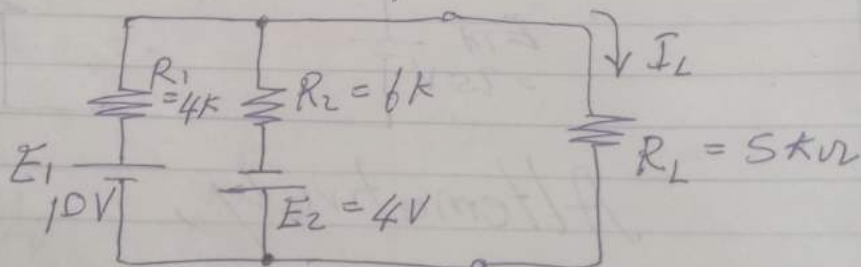 I_L
R_1 = 4K
R_2 = 6K
R_L = 5KΩ
E_1 10V
E_2 = 4V